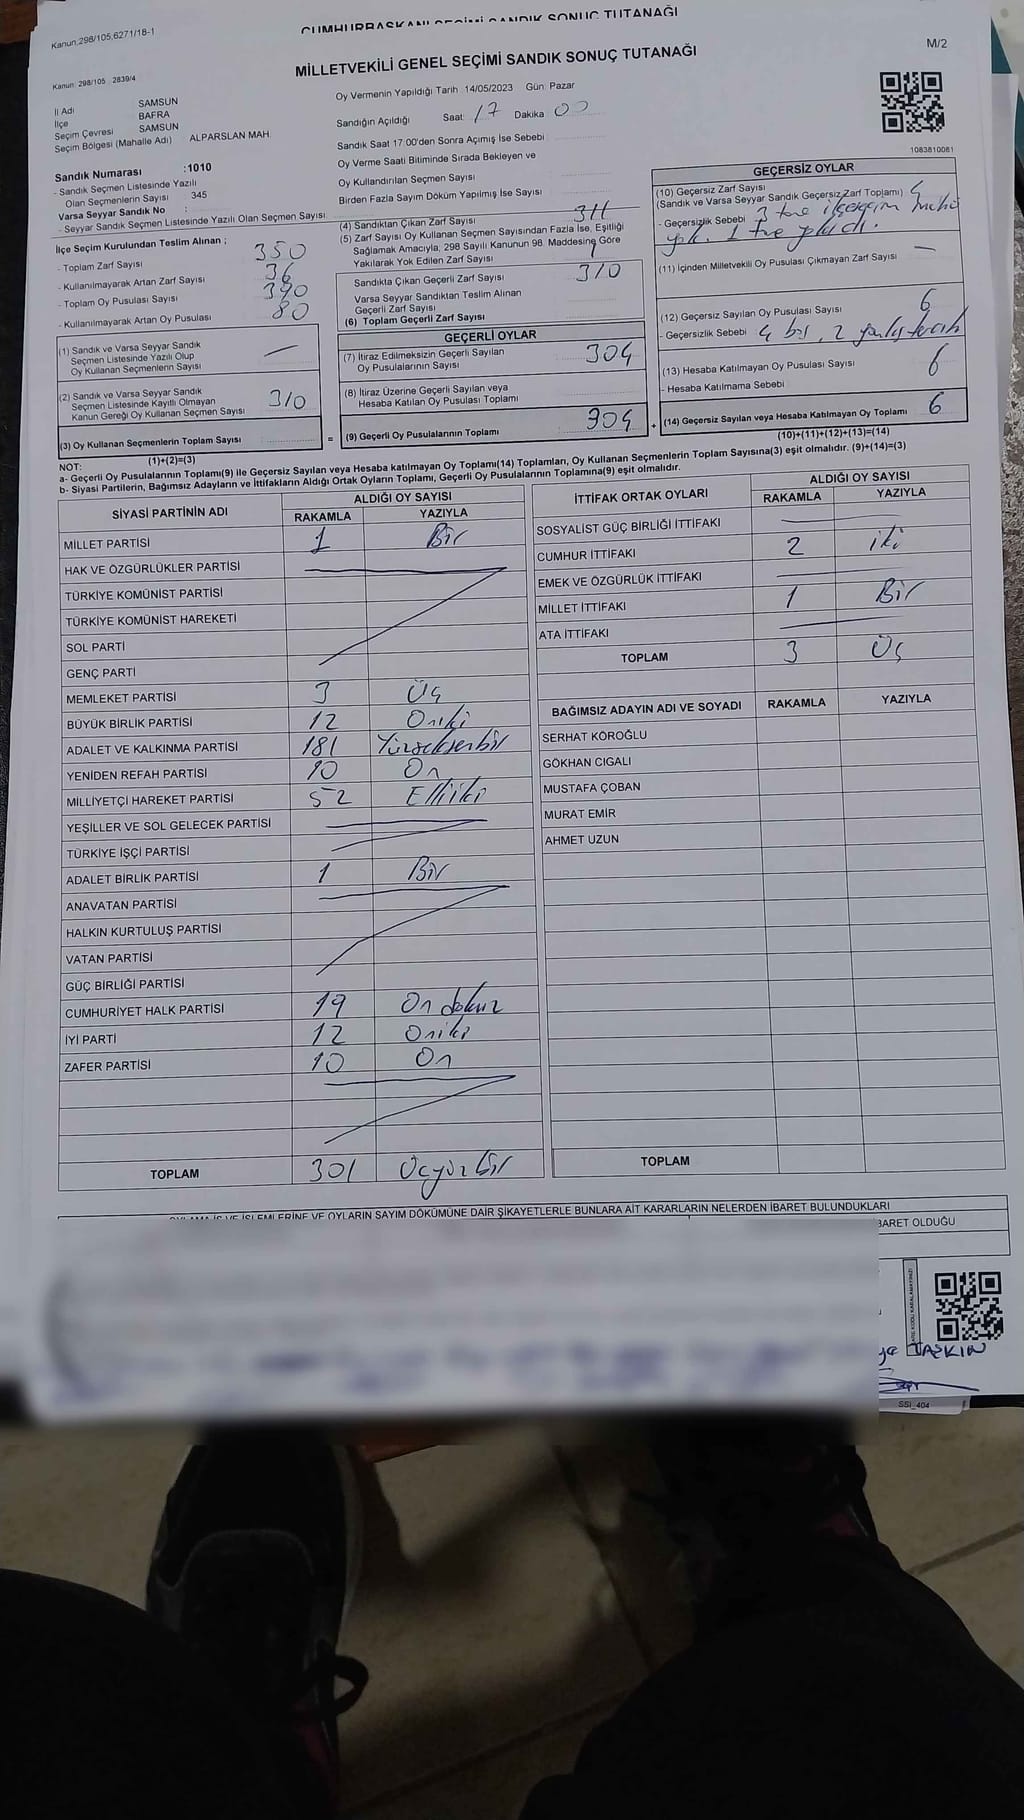 Kanun:298/105,6271/18-1
CUMHURBAŞKANI SEÇİMİ SANDIK SONUÇ TUTANAĞI
MİLLETVEKİLİ GENEL SEÇİMİ SANDIK SONUÇ TUTANAĞI
M/2
Kanun: 298/105 2839/4
İl Adı SAMSUN
İlçe BAFRA
Seçim Çevresi SAMSUN
Seçim Bölgesi (Mahalle Adı) ALPARSLAN MAH.
Oy Vermenin Yapıldığı Tarih 14/05/2023 Gün: Pazar
Sandığın Açıldığı Saat: 17 Dakika 00
Sandık Saat 17:00'den Sonra Açımış İse Sebebi
Oy Verme Saati Bitiminde Sırada Bekleyen ve
Oy Kullandırılan Seçmen Sayısı
Birden Fazla Sayım Döküm Yapılmış İse Sayısı
1083810081
Sandık Numarası :1010
- Sandık Seçmen Listesinde Yazılı
Olan Seçmenlerin Sayısı 345
Varsa Seyyar Sandık No :
- Seyyar Sandık Seçmen Listesinde Yazılı Olan Seçmen Sayısı
İlçe Seçim Kurulundan Teslim Alınan ;
- Toplam Zarf Sayısı 350
- Kullanılmayarak Artan Zarf Sayısı 36
- Toplam Oy Pusulası Sayısı 390
- Kullanılmayarak Artan Oy Pusulası 80
(1) Sandık ve Varsa Seyyar Sandık
Seçmen Listesinde Yazılı Olup
Oy Kullanan Seçmenlerin Sayısı —
(2) Sandık ve Varsa Seyyar Sandık
Seçmen Listesinde Kayıtlı Olmayan
Kanun Gereği Oy Kullanan Seçmen Sayısı 310
(3) Oy Kullanan Seçmenlerin Toplam Sayısı
(1)+(2)=(3)
(4) Sandıktan Çıkan Zarf Sayısı 311
(5) Zarf Sayısı Oy Kullanan Seçmen Sayısından Fazla İse, Eşitliği
Sağlamak Amacıyla, 298 Sayılı Kanunun 98. Maddesine Göre
Yakılarak Yok Edilen Zarf Sayısı 1
Sandıkta Çıkan Geçerli Zarf Sayısı 310
Varsa Seyyar Sandıktan Teslim Alınan
Geçerli Zarf Sayısı
(6) Toplam Geçerli Zarf Sayısı
GEÇERLİ OYLAR
(7) İtiraz Edilmeksizin Geçerli Sayılan
Oy Pusulalarının Sayısı 304
(8) İtiraz Üzerine Geçerli Sayılan veya
Hesaba Katılan Oy Pusulası Toplamı
= (9) Geçerli Oy Pusulalarının Toplamı 304 +
GEÇERSİZ OYLAR
(10) Geçersiz Zarf Sayısı
(Sandık ve Varsa Seyyar Sandık Geçersiz Zarf Toplamı) 4
- Geçersizlik Sebebi 3 tne ilçeseçim mührü
yok. 1 tne
(11) İçinden Milletvekili Oy Pusulası Çıkmayan Zarf Sayısı —
(12) Geçersiz Sayılan Oy Pusulası Sayısı 6
- Geçersizlik Sebebi 4 boş, 2
(13) Hesaba Katılmayan Oy Pusulası Sayısı 6
- Hesaba Katılmama Sebebi
(14) Geçersiz Sayılan veya Hesaba Katılmayan Oy Toplamı 6
(10)+(11)+(12)+(13)=(14)
NOT:
a- Geçerli Oy Pusulalarının Toplamı(9) ile Geçersiz Sayılan veya Hesaba katılmayan Oy Toplamı(14) Toplamları, Oy Kullanan Seçmenlerin Toplam Sayısına(3) eşit olmalıdır. (9)+(14)=(3)
b- Siyasi Partilerin, Bağımsız Adayların ve İttifakların Aldığı Ortak Oyların Toplamı, Geçerli Oy Pusulalarının Toplamına(9) eşit olmalıdır.
SİYASİ PARTİNİN ADI ALDIĞI OY SAYISI
RAKAMLA YAZIYLA
MİLLET PARTİSİ 1 Bir
HAK VE ÖZGÜRLÜKLER PARTİSİ
TÜRKİYE KOMÜNİST PARTİSİ
TÜRKİYE KOMÜNİST HAREKETİ
SOL PARTİ
GENÇ PARTİ
MEMLEKET PARTİSİ 3 Üç
BÜYÜK BİRLİK PARTİSİ 12 Oniki
ADALET VE KALKINMA PARTİSİ 181 Yüzseksenbir
YENİDEN REFAH PARTİSİ 10 On
MİLLİYETÇİ HAREKET PARTİSİ 52 Elliiki
YEŞİLLER VE SOL GELECEK PARTİSİ
TÜRKİYE İŞÇİ PARTİSİ
ADALET BİRLİK PARTİSİ 1 Bir
ANAVATAN PARTİSİ
HALKIN KURTULUŞ PARTİSİ
VATAN PARTİSİ
GÜÇ BİRLİĞİ PARTİSİ
CUMHURİYET HALK PARTİSİ 19 On dokuz
İYİ PARTİ 12 Oniki
ZAFER PARTİSİ 10 On
TOPLAM 301 Üçyüz bir
İTTİFAK ORTAK OYLARI ALDIĞI OY SAYISI
RAKAMLA YAZIYLA
SOSYALİST GÜÇ BİRLİĞİ İTTİFAKI
CUMHUR İTTİFAKI 2 iki
EMEK VE ÖZGÜRLÜK İTTİFAKI
MİLLET İTTİFAKI 1 Bir
ATA İTTİFAKI
TOPLAM 3 Üç
BAĞIMSIZ ADAYIN ADI VE SOYADI RAKAMLA YAZIYLA
SERHAT KÖROĞLU
GÖKHAN CIGALI
MUSTAFA ÇOBAN
MURAT EMİR
AHMET UZUN
TOPLAM
OYLAMA İŞ VE İŞLEMLERİNE VE OYLARIN SAYIM DÖKÜMÜNE DAİR ŞİKAYETLERLE BUNLARA AİT KARARLARIN NELERDEN İBARET BULUNDUKLARI
BARET OLDUĞU
TAŞKIN
SSİ_404